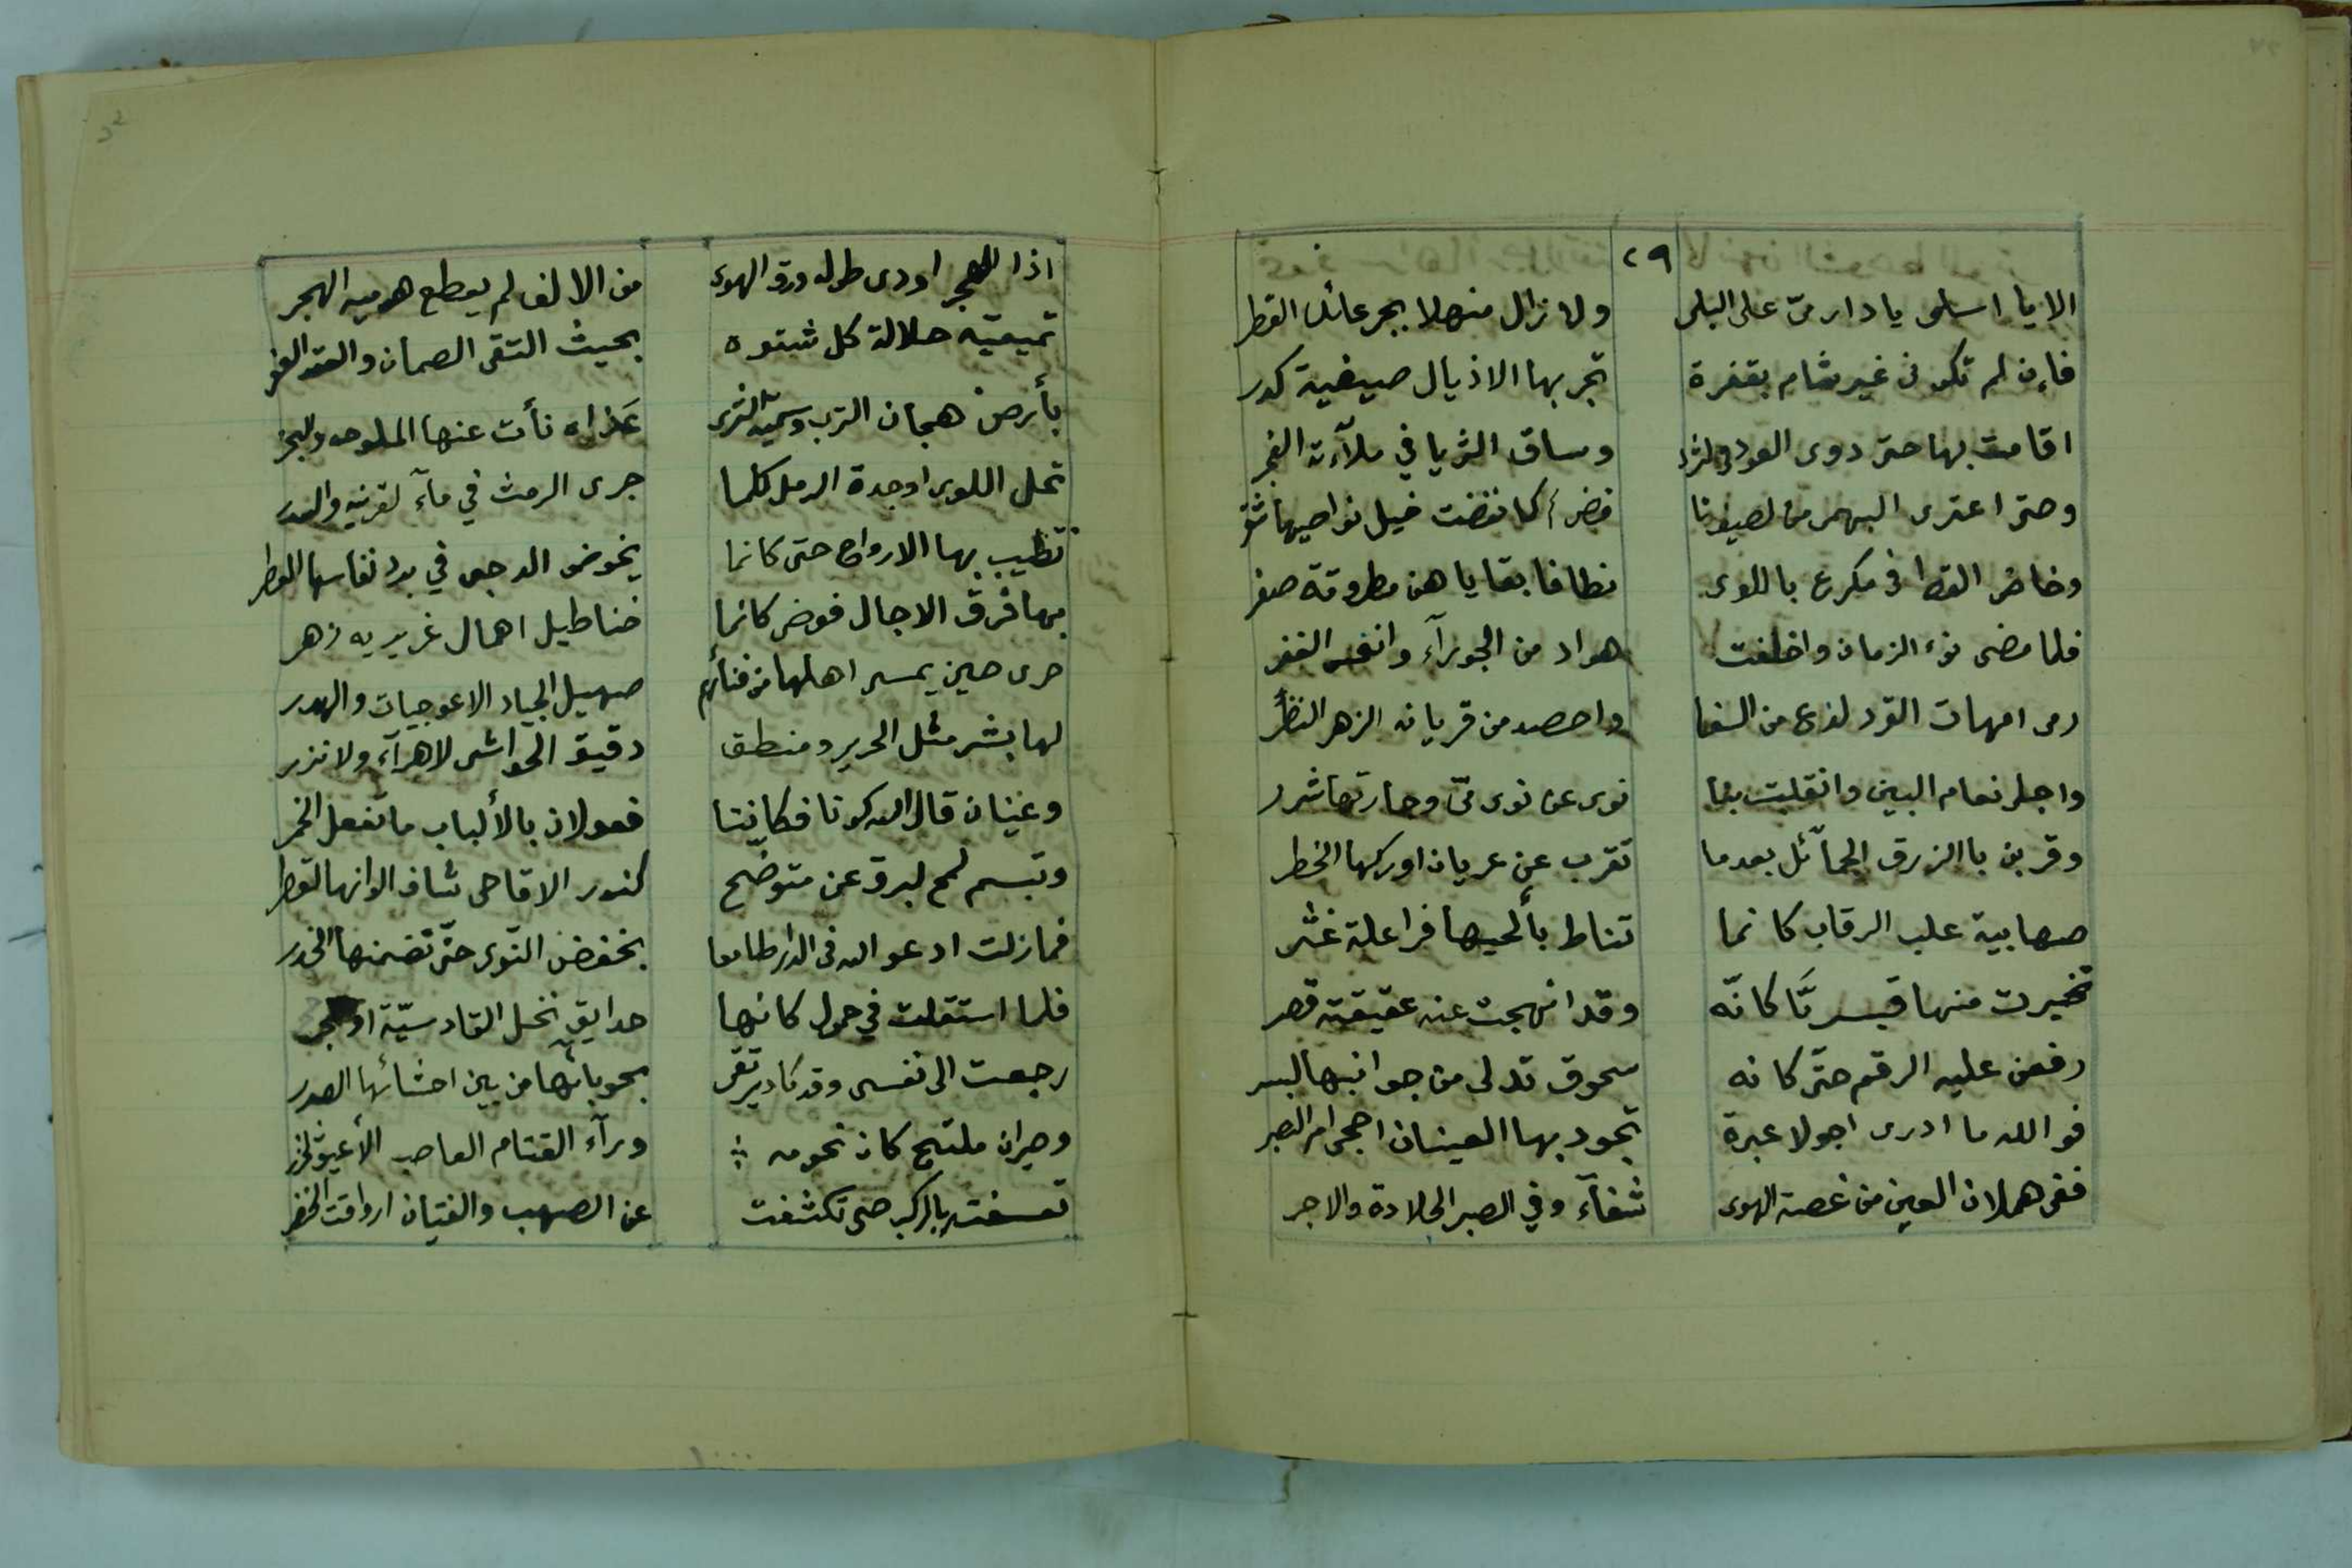 ٢٩
الا يا اسلمى يا دار مىّ على البلى ولا زال منهلا بجرعائك القطر
فإن لم تكونى غير شام بقفرة تجر بها الاذيال صيفية كدر
اقامت بها حتى ذوى العود فى الثرى وساق الثريا في ملآءته الفجر
وحتى اعترى البهمى من الصيف نافض كما نفضت خيل نواصيها شقر
وخاض القطا فى مكرع باللوى نطافا بقاياهن مطروقة صفر
فلما مضى نوء الزمان واخلفت هواد من الجوزآء وانغمس الغفر
رمى امهات القرد لذع من السفا واحصد من قريانه الزهر النظر
واجلى نعام البين وانفتلت بنا نوى عن نوى مىّ وجارتها شزر
وقربن باالزرق الجمآئل بعدما تقوب عن غربان اوركها الخطر
صهابية غلب الرقاب كانما تناط بألحيها فراعلة غثر
تخيرت منها قيسريّا كانّه وقد انهجت عنه عقيقته قصر
رفعن عليه الرقم حتّى كانه سحوق تدلى من جوانبها البسر
فوالله ما ادرى اجولا عبرة تجود بها العينان احجى ام الصبر
ففى هملان العين من غصة الهوى شفآء وفي الصبر الجلادة والاجر
اذا الهجر اودى طوله ورق الهوى من الالف لم يقطع هوى ميه الهجر
تميمية حلالة كل شتوة بحيث التقى الصمان والعقد العفر
بأرض هجان الترب وسمية الثرى عَذاة نأت عنها الملوحه والبحر
تحل اللوى او جدة الرمل كلما جرى الرمث في مآء القرينه والسدر
تطيب بها الارواح حتى كانما يخوض الدجى في برد انفاسها العطر
بها فرق الاجال فوضى كانما خناطيل اهمال غريريه زهر
حرى حين يمسى اهلها من فنآئهم صهيل الجياد الاعوجيات والهدر
لها بشر مثل الحرير ومنطق رقيق الحواشى لا هرآء ولا نزر
وعينان قال الله كونا فكانتا فعولان بالألباب ما تفعل الخمر
وتبسم لمح البرق عن متوضح كنور الاقاحى شاف الوانها القطر
فمازلت ادعو الله فى الدار طامعا بخفض النّوى حتّى تضمنها الخدر
فلما استقلت في حمول كانها حدايق نخل القادسيّة او حجر
رجعت الى نفسى وقد كاد يرتقى بحوبائها من بين احشائها الصدر
وحيران ملتج كان نجومه ورآء القتام العاصب الأعين الخزر
تعسفته بالركب حتى تكشفت عن الصهب والفتيان ارواقه الخضر